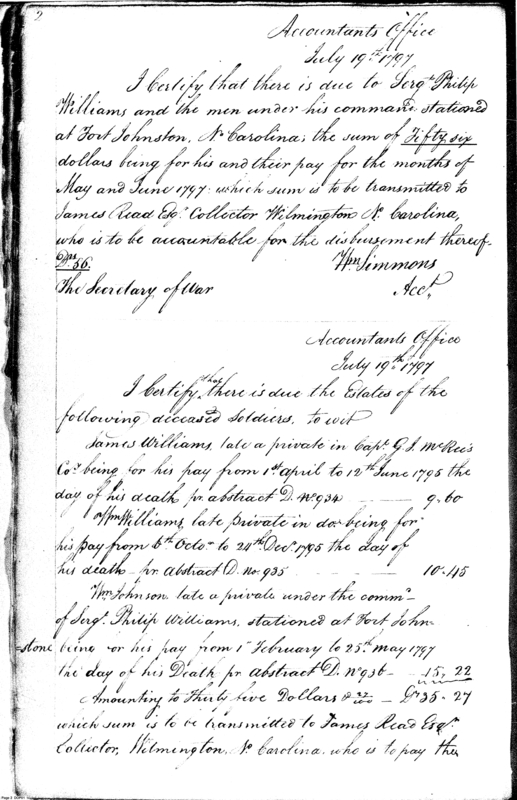 2
Accountants Office
July 19th 1797
I Certify that there is due to Sergt Philip
Williams and the men under his command stationed
at Fort Johnston, No Carolina; the sum of Fifty six
dollars being for his and their pay for the months of
May and June 1797: which sum is to be transmitted to
James Read Esqr Collector Wilmington No Carolina,
who is to be accountable for the disbursement thereof
Drs 56.
Wm Simmons
The Secretary of War
Acct.
Accountants Office
July 19th 1797
I Certify that there is due the Estates of the
following deceased Soldiers, to wit
James Williams, late a private in Capt. G. J. McRee's
Coy being for his pay from 1st April to 12th June 1795 the
day of his death pr. abstract D. No 934 9.60
Wm Williams, late private in do being for
his pay from 6th Octo. to 24th Decr. 1795 the day of
his death pr. abstract D. No. 935 10.45
Wm Johnson late a private under the commd
of Sergt. Philip Williams, stationed at Fort John-
=stone being for his pay from 1 February to 25th May 1797
the day of his Death pr abstract D. No 936 15.22
Amounting to Thirty five Dollars & 27/100 Drs 35.27
which sum is to be transmitted to James Read Esqr.
Collector, Wilmington, No Carolina, who is to pay the